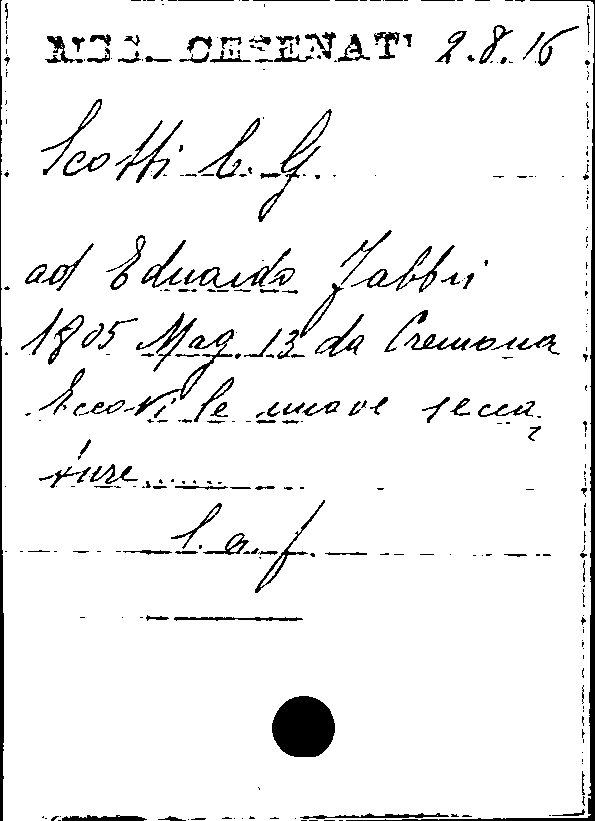 MSS. CESENATI 2.8.16
Scotti C. G.
ad Eduardo Fabbri
1805 Mag. 13 da Cremona
Eccovi le nuove secca
ture......
l. a. f.